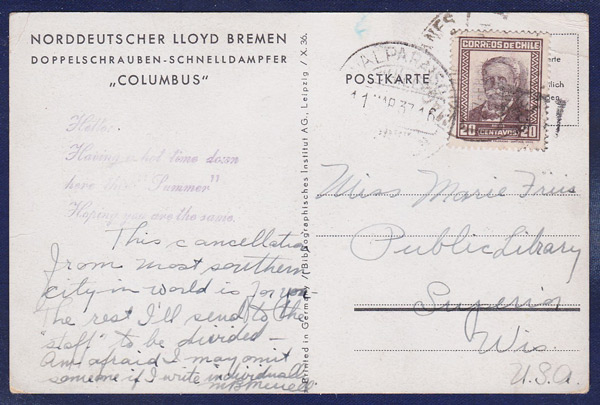 NORDDEUTSCHER LLOYD BREMEN
DOPPELSCHRAUBEN-SCHNELLDAMPFER
„COLUMBUS“
Hello.
Having a hot time down
here this "Summer"
Hoping you are the same.
This cancellation
from most southern
city in world is for you-
The rest I'll send to the
"staff" to be divided-
Am afraid I may omit
someone if I write individually
Printed in Germany / Bibliographisches Institut AG, Leipzig / X. 36.
POSTKARTE
VALPARAISO
11 MAR 37 16
CORREOS DE CHILE
20 CENTAVOS 20
Miss Marie Friis
Public Library
Superior
Wis.
U.S.A.